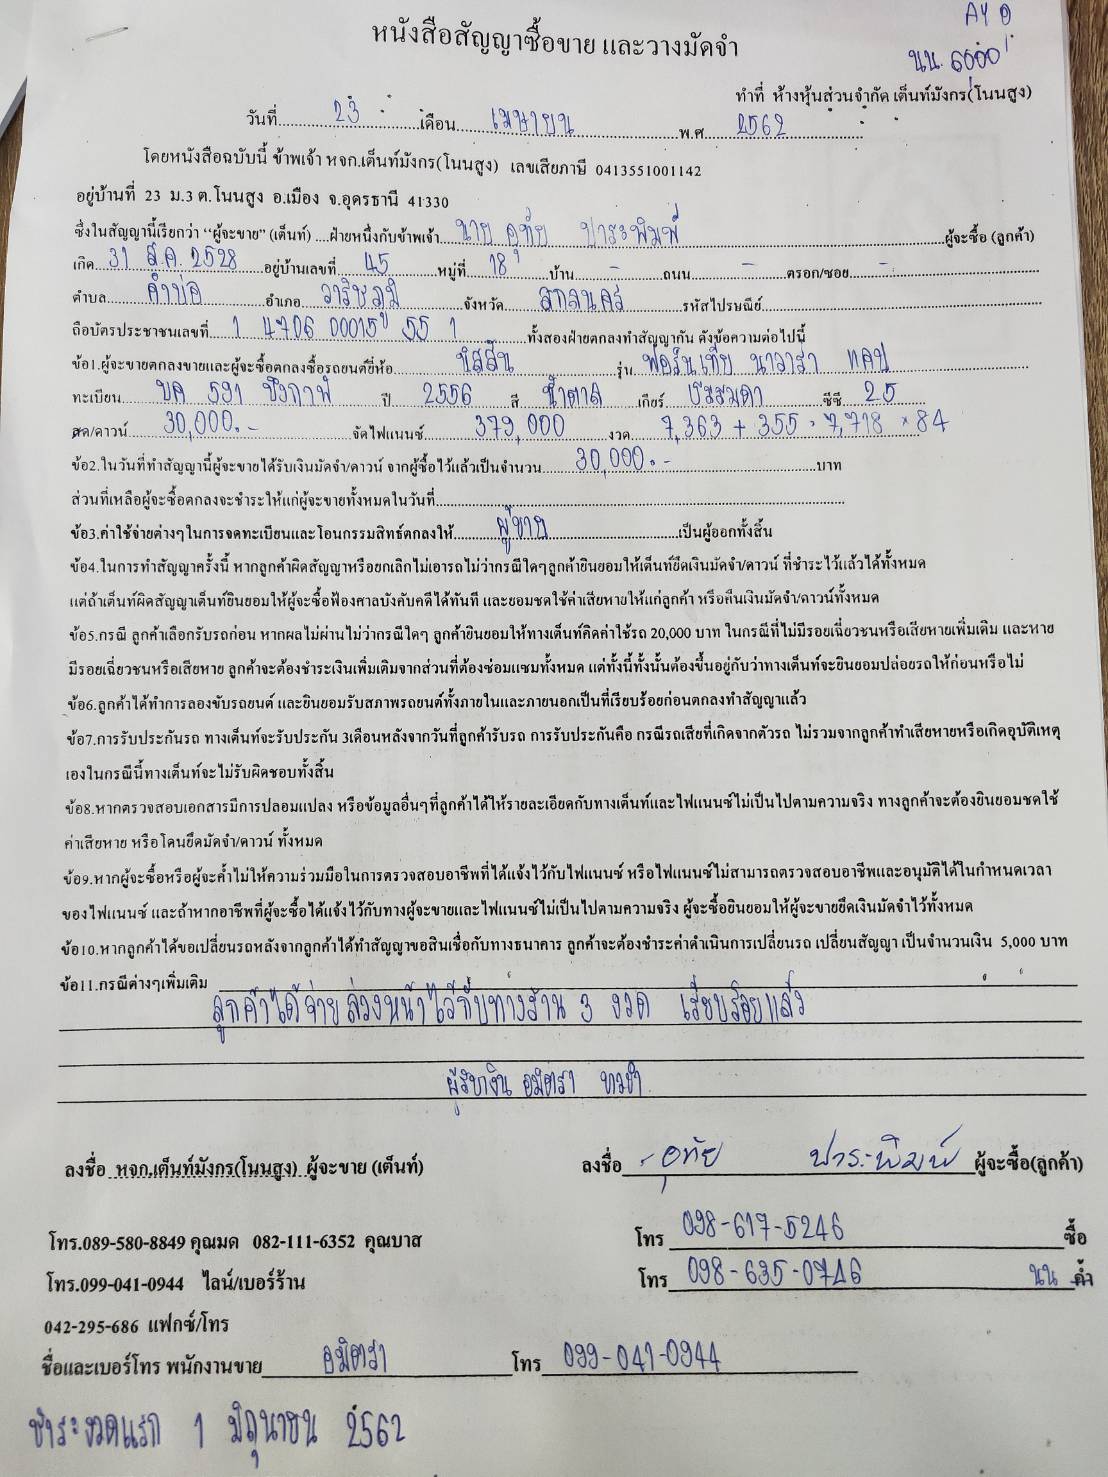 AY 0
หนังสือสัญญาซื้อขาย และวางมัดจำ
นน. 6000
ทำที่ ห้างหุ้นส่วนจำกัด เต็นท์มังกร(โนนสูง)
วันที่ 23 เดือน เมษายน พ.ศ 2562
โดยหนังสือฉบับนี้ ข้าพเจ้า หจก.เต็นท์มังกร(โนนสูง) เลขเสียภาษี 0413551001142
อยู่บ้านที่ 23 ม.3 ต.โนนสูง อ.เมือง จ.อุดรธานี 41330
ซึ่งในสัญญานี้เรียกว่า “ผู้จะขาย” (เต็นท์) ....ฝ่ายหนึ่งกับข้าพเจ้า นาย อุทัย ปาระพิมพ์ ผู้จะซื้อ (ลูกค้า)
เกิด 31 ส.ค. 2528 อยู่บ้านเลขที่ 45 หมู่ที่ 18 บ้าน - ถนน - ตรอก/ซอย -
ตำบล คำบ่อ อำเภอ วาริชภูมิ จังหวัด สกลนคร รหัสไปรษณีย์
ถือบัตรประชาชนเลขที่ 1 4706 00015 55 1 ทั้งสองฝ่ายตกลงทำสัญญากัน ดังข้อความต่อไปนี้
ข้อ1.ผู้จะขายตกลงขายและผู้จะซื้อตกลงซื้อรถยนต์ยี่ห้อ นิสสัน รุ่น ฟอร์นเทีย นาวาร่า แคป
ทะเบียน บค 591 บึงกาฬ ปี 2556 สี น้ำตาล เกียร์ ธรรมดา ซีซี 25
สด/ดาวน์ 30,000.- จัดไฟแนนซ์ 379,000 งวด 7,363 + 355 = 7,718 × 84
ข้อ2.ในวันที่ทำสัญญานี้ผู้จะขายได้รับเงินมัดจำ/ดาวน์ จากผู้ซื้อไว้แล้วเป็นจำนวน 30,000.- บาท
ส่วนที่เหลือผู้จะซื้อตกลงจะชำระให้แก่ผู้จะขายทั้งหมดในวันที่
ข้อ3.ค่าใช้จ่ายต่างๆในการจดทะเบียนและโอนกรรมสิทธ์ตกลงให้ ผู้ขาย เป็นผู้ออกทั้งสิ้น
ข้อ4.ในการทำสัญญาครั้งนี้ หากลูกค้าผิดสัญญาหรือยกเลิกไม่เอารถไม่ว่ากรณีใดๆลูกค้ายินยอมให้เต็นท์ยึดเงินมัดจำ/ดาวน์ ที่ชำระไว้แล้วได้ทั้งหมด
แต่ถ้าเต็นท์ผิดสัญญาเต็นท์ยินยอมให้ผู้จะซื้อฟ้องศาลบังคับคดีได้ทันที และยอมชดใช้ค่าเสียหายให้แก่ลูกค้า หรือคืนเงินมัดจำ/ดาวน์ทั้งหมด
ข้อ5.กรณี ลูกค้าเลือกรับรถก่อน หากผลไม่ผ่านไม่ว่ากรณีใดๆ ลูกค้ายินยอมให้ทางเต็นท์คิดค่าใช้รถ 20,000 บาท ในกรณีที่ไม่มีรอยเฉี่ยวชนหรือเสียหายเพิ่มเติม และหาย
มีรอยเฉี่ยวชนหรือเสียหาย ลูกค้าจะต้องชำระเงินเพิ่มเติมจากส่วนที่ต้องซ่อมแซมทั้งหมด แต่ทั้งนี้ทั้งนั้นต้องขึ้นอยู่กับว่าทางเต็นท์จะยินยอมปล่อยรถให้ก่อนหรือไม่
ข้อ6.ลูกค้าได้ทำการลองขับรถยนต์ และยินยอมรับสภาพรถยนต์ทั้งภายในและภายนอกเป็นที่เรียบร้อยก่อนตกลงทำสัญญาแล้ว
ข้อ7.การรับประกันรถ ทางเต็นท์จะรับประกัน 3เดือนหลังจากวันที่ลูกค้ารับรถ การรับประกันคือ กรณีรถเสียที่เกิดจากตัวรถ ไม่รวมจากลูกค้าทำเสียหายหรือเกิดอุบัติเหตุ
เองในกรณีนี้ทางเต็นท์จะไม่รับผิดชอบทั้งสิ้น
ข้อ8.หากตรวจสอบเอกสารมีการปลอมแปลง หรือข้อมูลอื่นๆที่ลูกค้าได้ให้รายละเอียดกับทางเต็นท์และไฟแนนซ์ไม่เป็นไปตามความจริง ทางลูกค้าจะต้องยินยอมชดใช้
ค่าเสียหาย หรือโดนยึดมัดจำ/ดาวน์ ทั้งหมด
ข้อ9.หากผู้จะซื้อหรือผู้จะค้ำไม่ให้ความร่วมมือในการตรวจสอบอาชีพที่ได้แจ้งไว้กับไฟแนนซ์ หรือไฟแนนซ์ไม่สามารถตรวจสอบอาชีพและอนุมัติได้ในกำหนดเวลา
ของไฟแนนซ์ และถ้าหากอาชีพที่ผู้จะซื้อได้แจ้งไว้กับทางผู้จะขายและไฟแนนซ์ไม่เป็นไปตามความจริง ผู้จะซื้อยินยอมให้ผู้จะขายยึดเงินมัดจำไว้ทั้งหมด
ข้อ10.หากลูกค้าได้ขอเปลี่ยนรถหลังจากลูกค้าได้ทำสัญญาขอสินเชื่อกับทางธนาคาร ลูกค้าจะต้องชำระค่าดำเนินการเปลี่ยนรถ เปลี่ยนสัญญา เป็นจำนวนเงิน 5,000 บาท
ข้อ11.กรณีต่างๆเพิ่มเติม
ลูกค้าได้จ่ายล่วงหน้าไว้กับทางร้าน 3 งวด เรียบร้อยแล้ว
ผู้รับเงิน อมิตรา
ลงชื่อ หจก.เต็นท์มังกร(โนนสูง) ผู้จะขาย (เต็นท์) ลงชื่อ อุทัย ปาระพิมพ์ ผู้จะซื้อ(ลูกค้า)
โทร.089-580-8849 คุณมด 082-111-6352 คุณบาส โทร 098-617-5246 ซื้อ
โทร.099-041-0944 ไลน์/เบอร์ร้าน โทร 098-635-0746 นน ค้ำ
042-295-686 แฟกซ์/โทร
ชื่อและเบอร์โทร พนักงานขาย อมิตรา โทร 099-041-0944
ชำระงวดแรก 1 มิถุนายน 2562